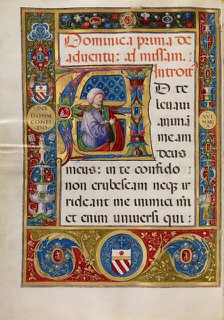 Dominica prima de
aduentu: ad missam.
Introit
A D te
leuaui
animā
meam
deus
meus: in te confido
non erubescam neqz ir
rideant me inimici mi
et enim uniuersi qui
DOMN
CONFI
DO
AVE